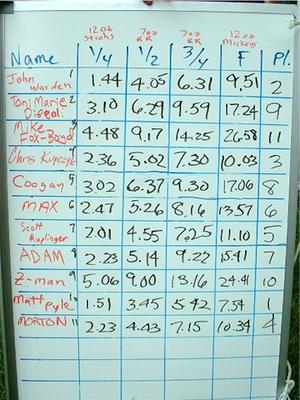 12oz 7oz 7oz 12oz
RR RR Mickeys
Name 1/4 1/2 3/4 F Pl.
John Warden 1 1.44 4.05 6.31 9.51 2
Toni Marie Diesal 2 3.10 6.29 9.59 17.24 9
Mike Fox-Boyd 3 4.48 9.17 14.25 26.58 11
Chris 4 2.36 5.02 7.30 10.03 3
Coogan 5 3.02 6.37 9.30 17.06 8
MAX 6 2.47 5.26 8.16 13.57 6
Scott Ruplinger 7 2.01 4.55 7.25 11.10 5
ADAM 8 2.23 5.14 9.22 15.41 7
Z-man 9 5.06 9.00 13.16 24.41 10
Matt Pyle 10 1.51 3.45 5.42 7.54 1
MORTON 11 2.23 4.43 7.15 10.34 4